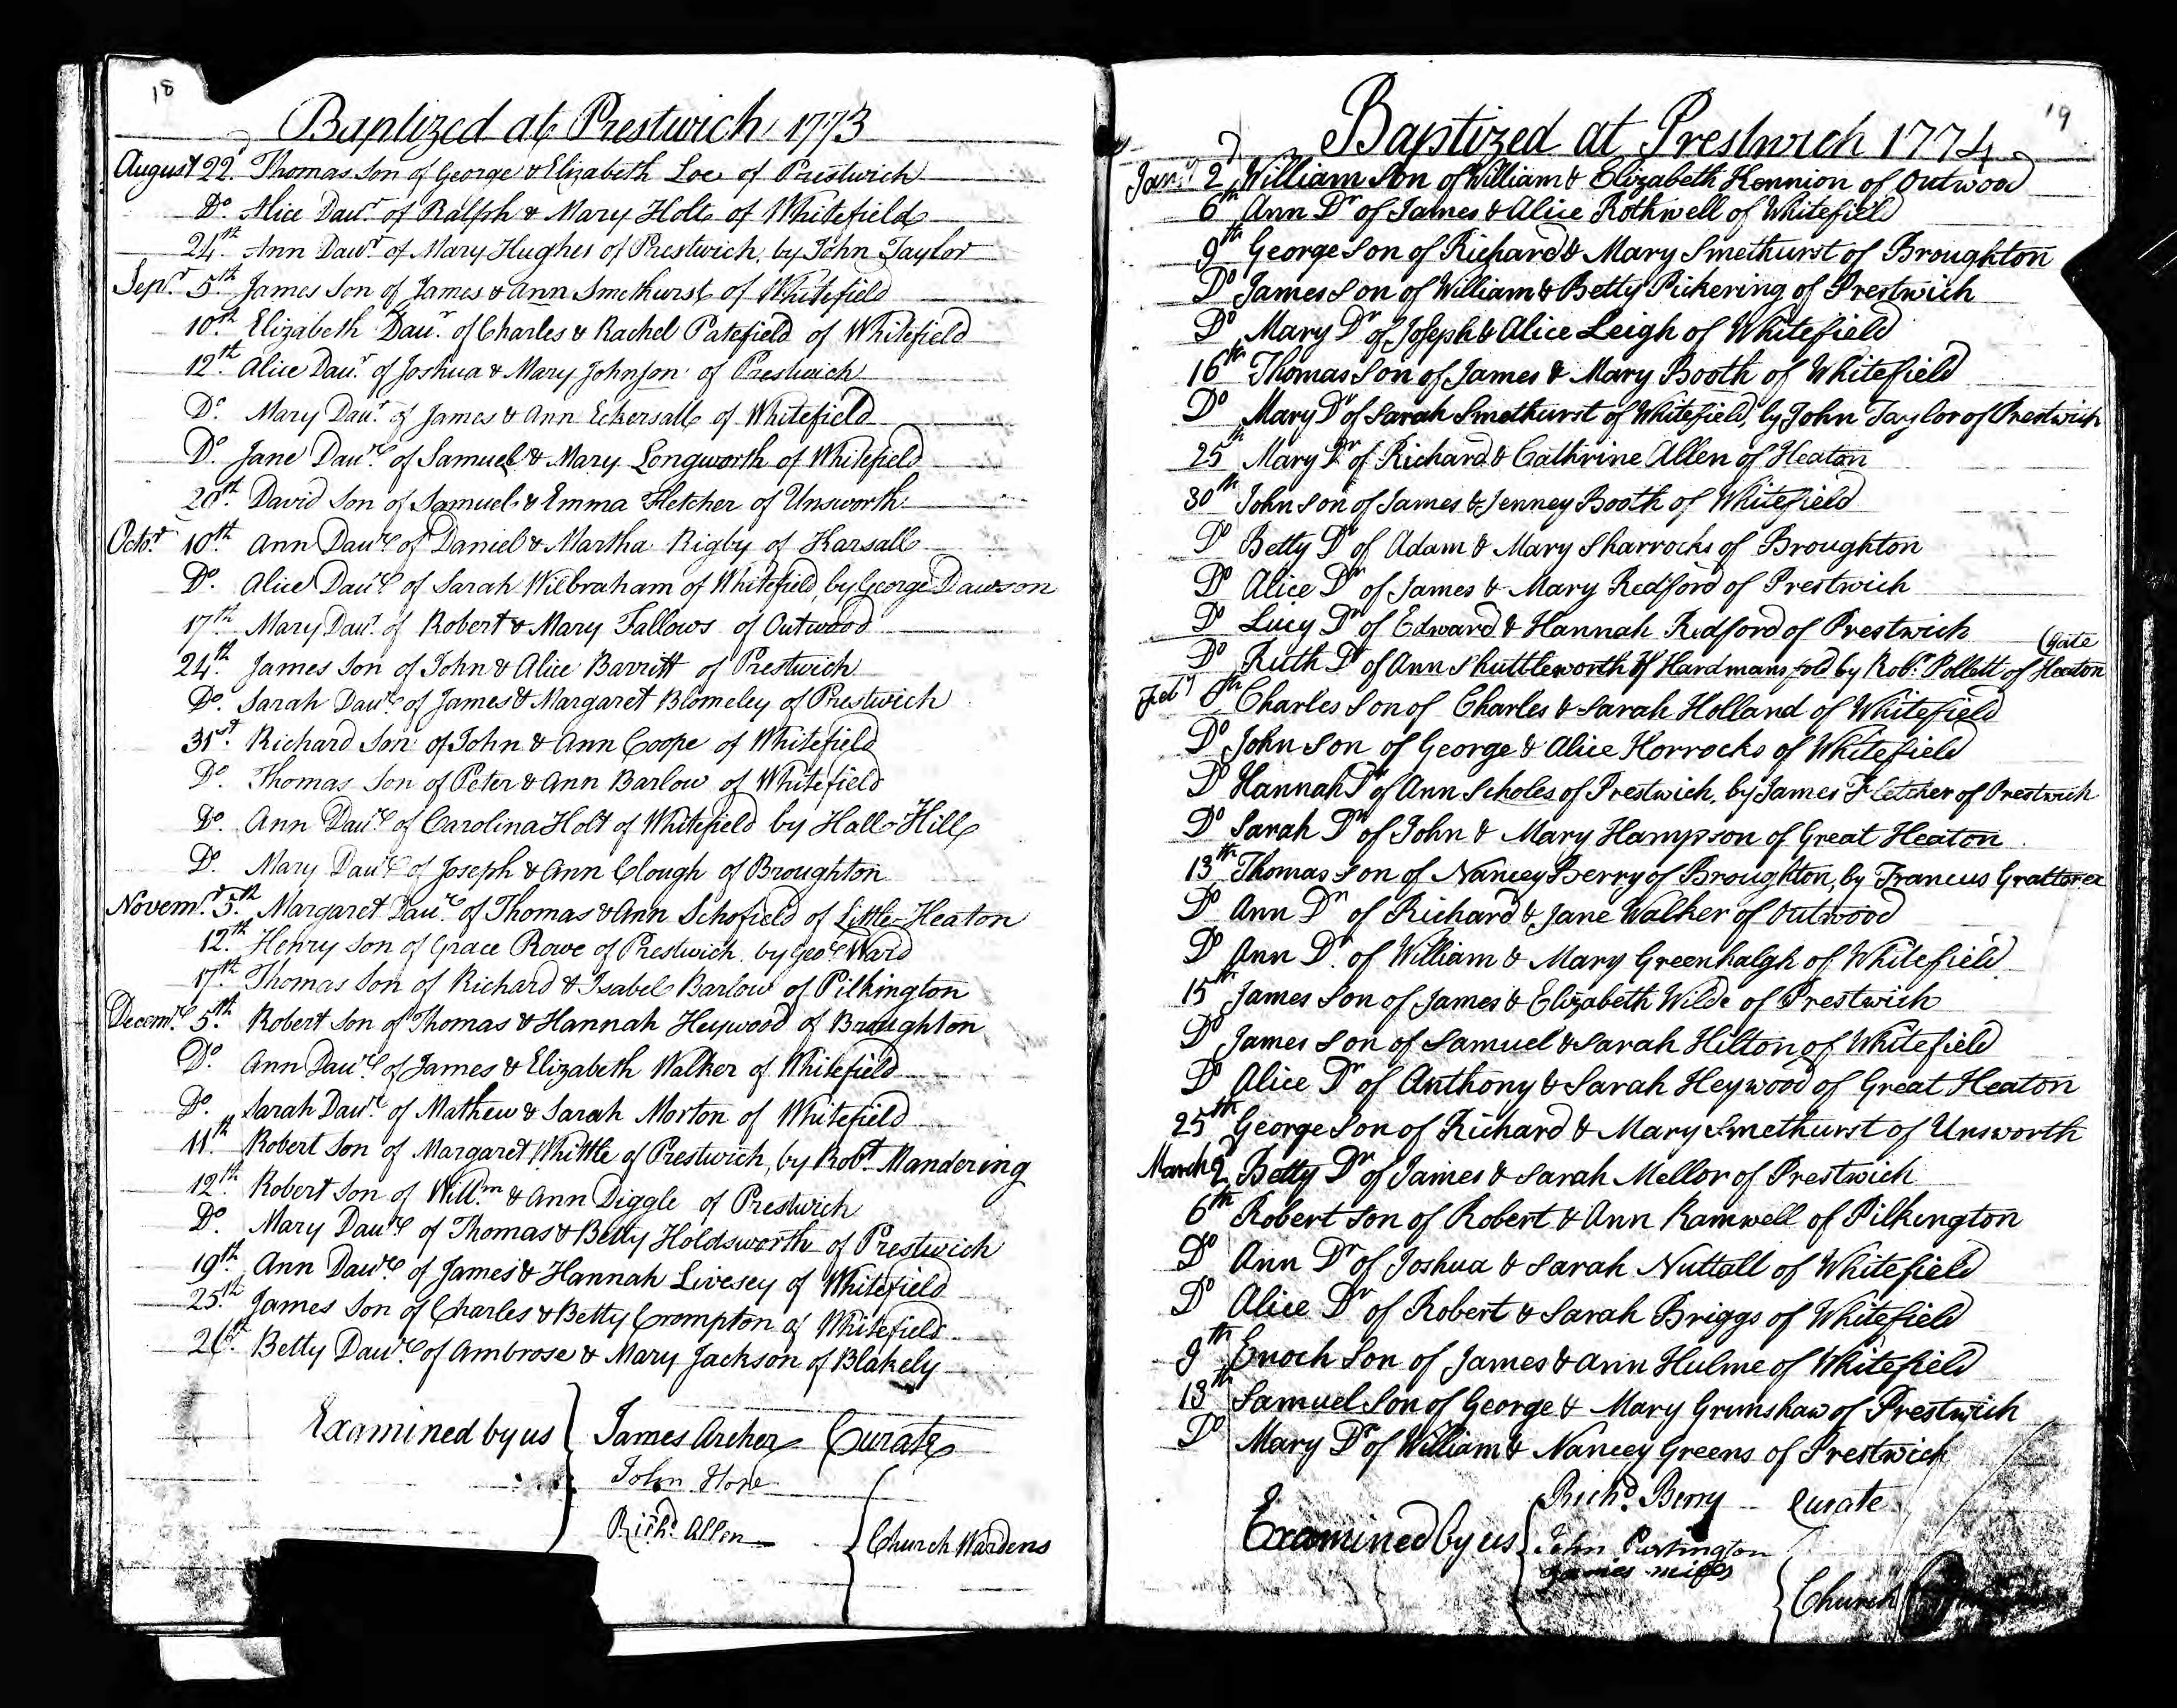 18
Baptized at Prestwich 1773
August 22d. Thomas Son of George & Elizabeth Loe of Prestwich
Do. Alice Daur. of Ralph & Mary Holt of Whitefield
24th. Ann Daur. of Mary Hughes of Prestwich, by John Taylor
Sepr. 5th. James Son of James & Ann Smethurst of Whitefield
10th. Elizabeth Daur. of Charles & Rachel Patefield of Whitefield
12th. Alice Daur. of Joshua & Mary Johnson of Prestwich
Do. Mary Daur. of James & Ann Eckersall of Whitefield
Do. Jane Daure. of Samuel & Mary Longworth of Whitefield
20th. David Son of Samuel & Emma Fletcher of Unsworth
Octor. 10th. Ann Daure of Daniel & Martha Rigby of Karsall
Do. Alice Daure of Sarah Wilbraham of Whitefield, by George Dawson
17th. Mary Daur. of Robert & Mary Fallows of Outwood
24th. James Son of John & Alice Barritt of Prestwich
Do. Sarah Daure. of James & Margaret Blomeley of Prestwich
31st. Richard Son of John & Ann Coope of Whitefield
Do. Thomas Son of Peter & Ann Barlow of Whitefield
Do. Ann Daure. of Carolina Holt of Whitefield by Hall Hill
Do. Mary Daure of Joseph & Ann Clough of Broughton
Novemr. 5th. Margaret Daure. of Thomas & Ann Schofield of Little Heaton
12th. Henry Son of Grace Rowe of Prestwich by Geoe Ward
17th. Thomas Son of Richard & Isabel Barlow of Pilkington
Decemre. 5th. Robert Son of Thomas & Hannah Heywood of Broughton
Do. Ann Daure. of James & Elizabeth Walker of Whitefield
Do. Sarah Daure. of Mathew & Sarah Morton of Whitefield
11th. Robert Son of Margaret Whittle of Prestwich, by Robt. Mandering
12th. Robert Son of Willm. & Ann Diggle of Prestwich
Do. Mary Daure of Thomas & Betty Holdsworth of Prestwich
19th. Ann Daure of James & Hannah Livesey of Whitefield
25th. James Son of Charles & Betty Crompton of Whitefield
26th. Betty Daure. of Ambrose & Mary Jackson of Blakely
Examined by us James Archer Curate
John Hope
Richd. Allen
Church Wardens
19
Baptized at Prestwich 1774
Jany. 2d William Son of William & Elizabeth Hennion of Outwood
6th Ann Dr of James & Alice Rothwell of Whitefield
9th George Son of Richard & Mary Smethurst of Broughton
Do James Son of William & Betty Pickering of Prestwich
Do Mary Dr of Joseph & Alice Leigh of Whitefield
16th Thomas Son of James & Mary Booth of Whitefield
Do Mary Dr of Sarah Smethurst of Whitefield, by John Taylor of Prestwich
25th Mary Dr of Richard & Cathrine Allen of Heaton
30th John Son of James & Jenney Booth of Whitefield
Do Betty Dr of Adam & Mary Sharrocks of Broughton
Do Alice Dr of James & Mary Redford of Prestwich
Do Lucy Dr of Edward & Hannah Redford of Prestwich
(Gate
Do Ruth Dr of Ann Shuttleworth of Hardmans fold by Robt. Pollett of Heaton
Feby 6th Charles Son of Charles & Sarah Holland of Whitefield
Do John Son of George & Alice Horrocks of Whitefield
Do Hannah Dr of Ann Scholes of Prestwich, by James Fletcher of Prestwich
Do Sarah Dr of John & Mary Hampson of Great Heaton
13th Thomas Son of Nancey Berry of Broughton, by Francus Grattorex
Do Ann Dr of Richard & Jane Walker of Outwood
Do Ann Dr. of William & Mary Greenhalgh of Whitefield
15th James Son of James & Elizabeth Wilde of Prestwich
Do James Son of Samuel & Sarah Hilton of Whitefield
Do Alice Dr of Anthony & Sarah Heywood of Great Heaton
25th George Son of Richard & Mary Smethurst of Unsworth
March 2d Betty Dr of James & Sarah Mellor of Prestwich
6th Robert Son of Robert & Ann Ramwell of Pilkington
Do Ann Dr of Joshua & Sarah Nuttall of Whitefield
Do Alice Dr of Robert & Sarah Briggs of Whitefield
9th Enoch Son of James & Ann Hulme of Whitefield
13th Samuel Son of George & Mary Grunshaw of Prestwich
Do Mary Dr of William & Nancey Greens of Prestwich
Richd. Berry Curate
Examined by us John Partington
James
Church